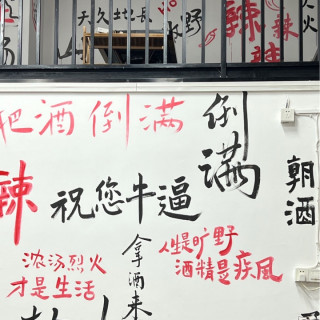 天久地長
野
辣
辣
辣
把酒倒满
倒满
辣
祝您牛逼
朝酒
拿酒来
人生是旷野
酒精是疾风
浓汤烈火
才是生活